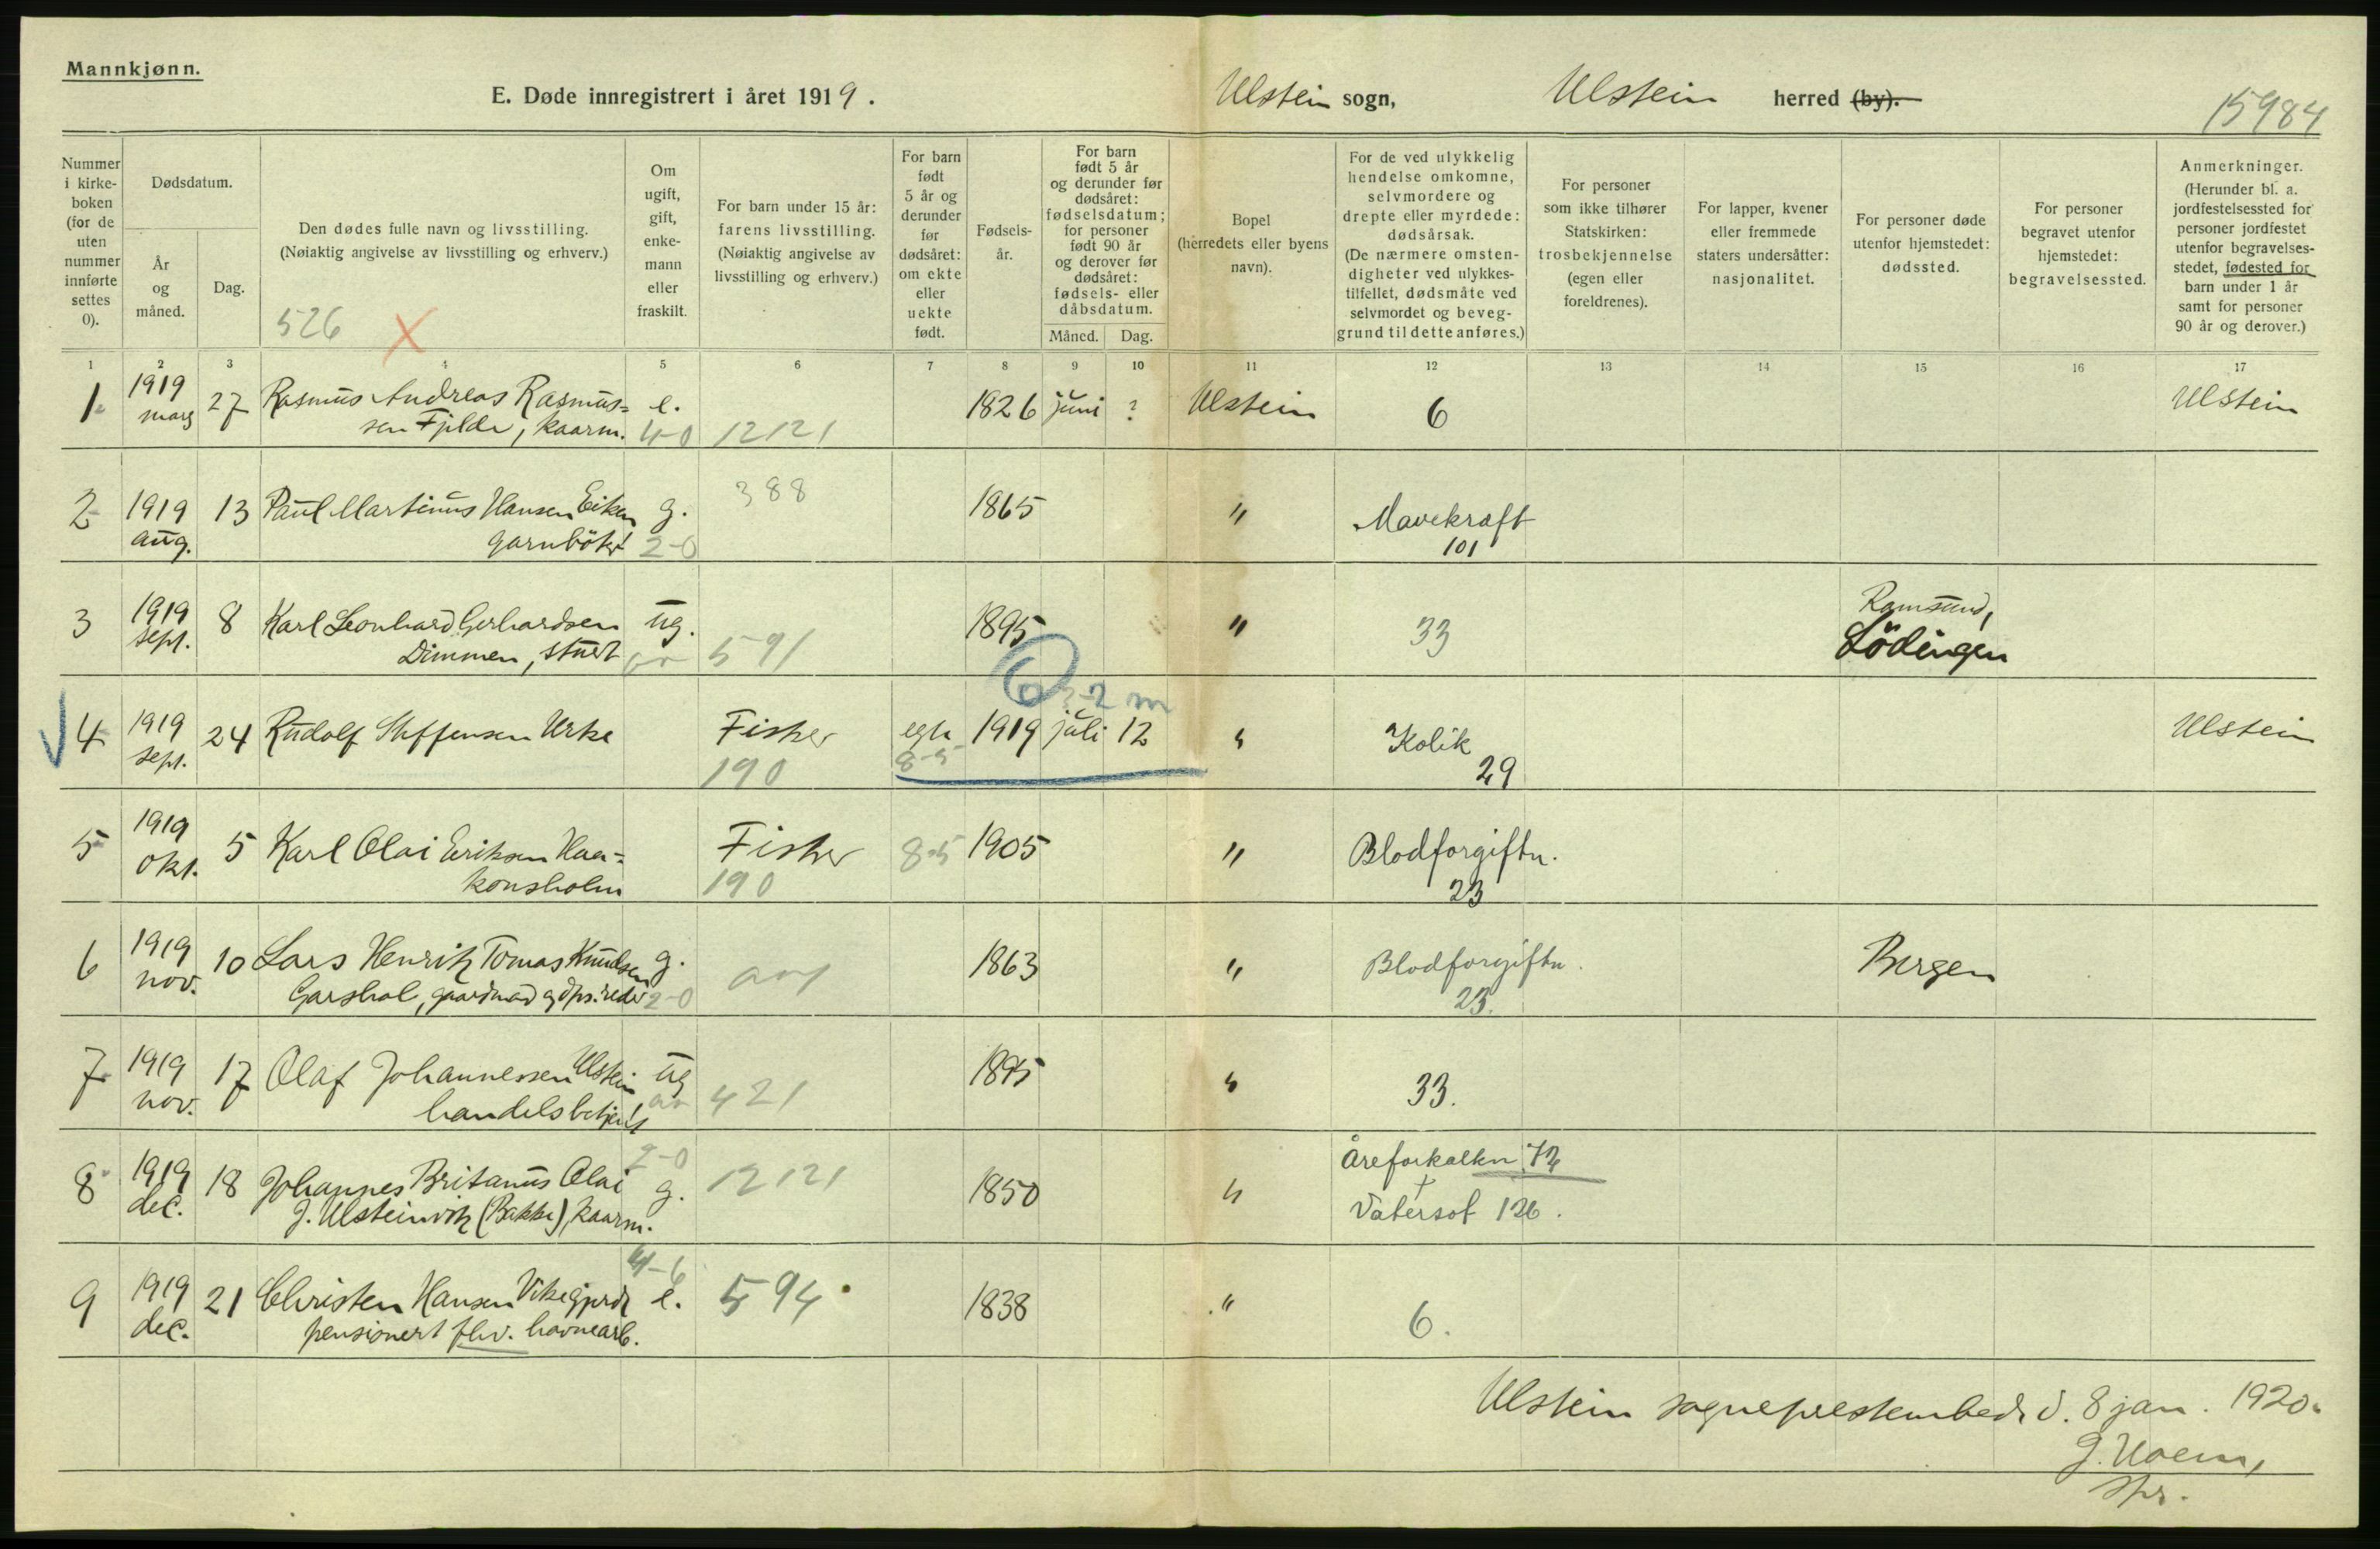 Mannkjønn.
E. Døde innregistrert i året 1919.
Ulstein sogn, Ulstein herred (by).
15984
Nummer i kirkeboken (for de uten nummer innførte settes 0).
Dødsdatum.
År og måned.
Dag.
Den dødes fulle navn og livsstilling.
(Nøiaktig angivelse av livsstilling og erhverv.)
526 X
Om ugift, gift, enkemann eller fraskilt.
For barn under 15 år: farens livsstilling. (Nøiaktig angivelse av livsstilling og erhverv.)
For barn født 5 år og derunder før dødsåret: om ekte eller uekte født.
Fødselsår.
For barn født 5 år og derunder før dødsåret: fødselsdatum; for personer født 90 år og derover før dødsåret: fødsels- eller dåbsdatum.
Måned.
Dag.
Bopel (herredets eller byens navn).
For de ved ulykkelig hendelse omkomne, selvmordere og drepte eller myrdede: dødsårsak. (De nærmere omstendigheter ved ulykkestilfellet, dødsmåte ved selvmordet og beveggrund til dette anføres.)
For personer som ikke tilhører Statskirken: trosbekjennelse (egen eller foreldrenes).
For lapper, kvener eller fremmede staters undersåtter: nasjonalitet.
For personer døde utenfor hjemstedet: dødssted.
For personer begravet utenfor hjemstedet: begravelsessted.
Anmerkninger. (Herunder bl. a. jordfestelsessted for personer jordfestet utenfor begravelsesstedet, fødested for barn under 1 år samt for personer 90 år og derover.)
1 2 3 4 5 6 7 8 9 10 11 12 13 14 15 16 17
1 1919 mars 27 Rasmus Andreas Rasmus=
sen Fjelde, kaarm. e. 4-0 12121 1826 juni ? Ulstein 6 Ulstein
2 1919 aug. 13 Paul Martinus Hansen Eiken
garnbøter g. 2-0 388 1865 " Mavekraft 101
3 1919 sept. 8 Karl Leonhard Gerhardsen
Dimmen, stuert ug. 591 1895 " 33 Ramsund, Lödingen
4 1919 sept. 24 Rudolf Steffensen Urke Fisker 190 egte 8-5 1919 juli 12 " Kolik 29 Ulstein
2 m
5 1919 okt. 5 Karl Olai Eriksen Haa=
konsholm Fisker 190 8-5 1905 " Blodforgiftn. 23
6 1919 nov. 10 Lars Henrik Tomas Knudsen
Garshol, gaardmad g. 2-0 1863 " Blodforgiftn. 23. Bergen
7 1919 nov. 17 Olaf Johannessen Ulstein
handelsbetjent ug 421 1895 " 33.
8 1919 dec. 18 Johannes Britanus Olai
J. Ulsteinvik (Bakke) kaarm. 2-0 g. 12121 1850 " Åreforkalkn. 72
+
Vatersot 126.
9 1919 dec. 21 Christen Hansen Vikegjerde
pensionert fhv. havnearb. 4-6 e. 594 1838 " 6.
Ulstein sogneprestembede d. 8 jan. 1920.
J. Hoem,
spr.